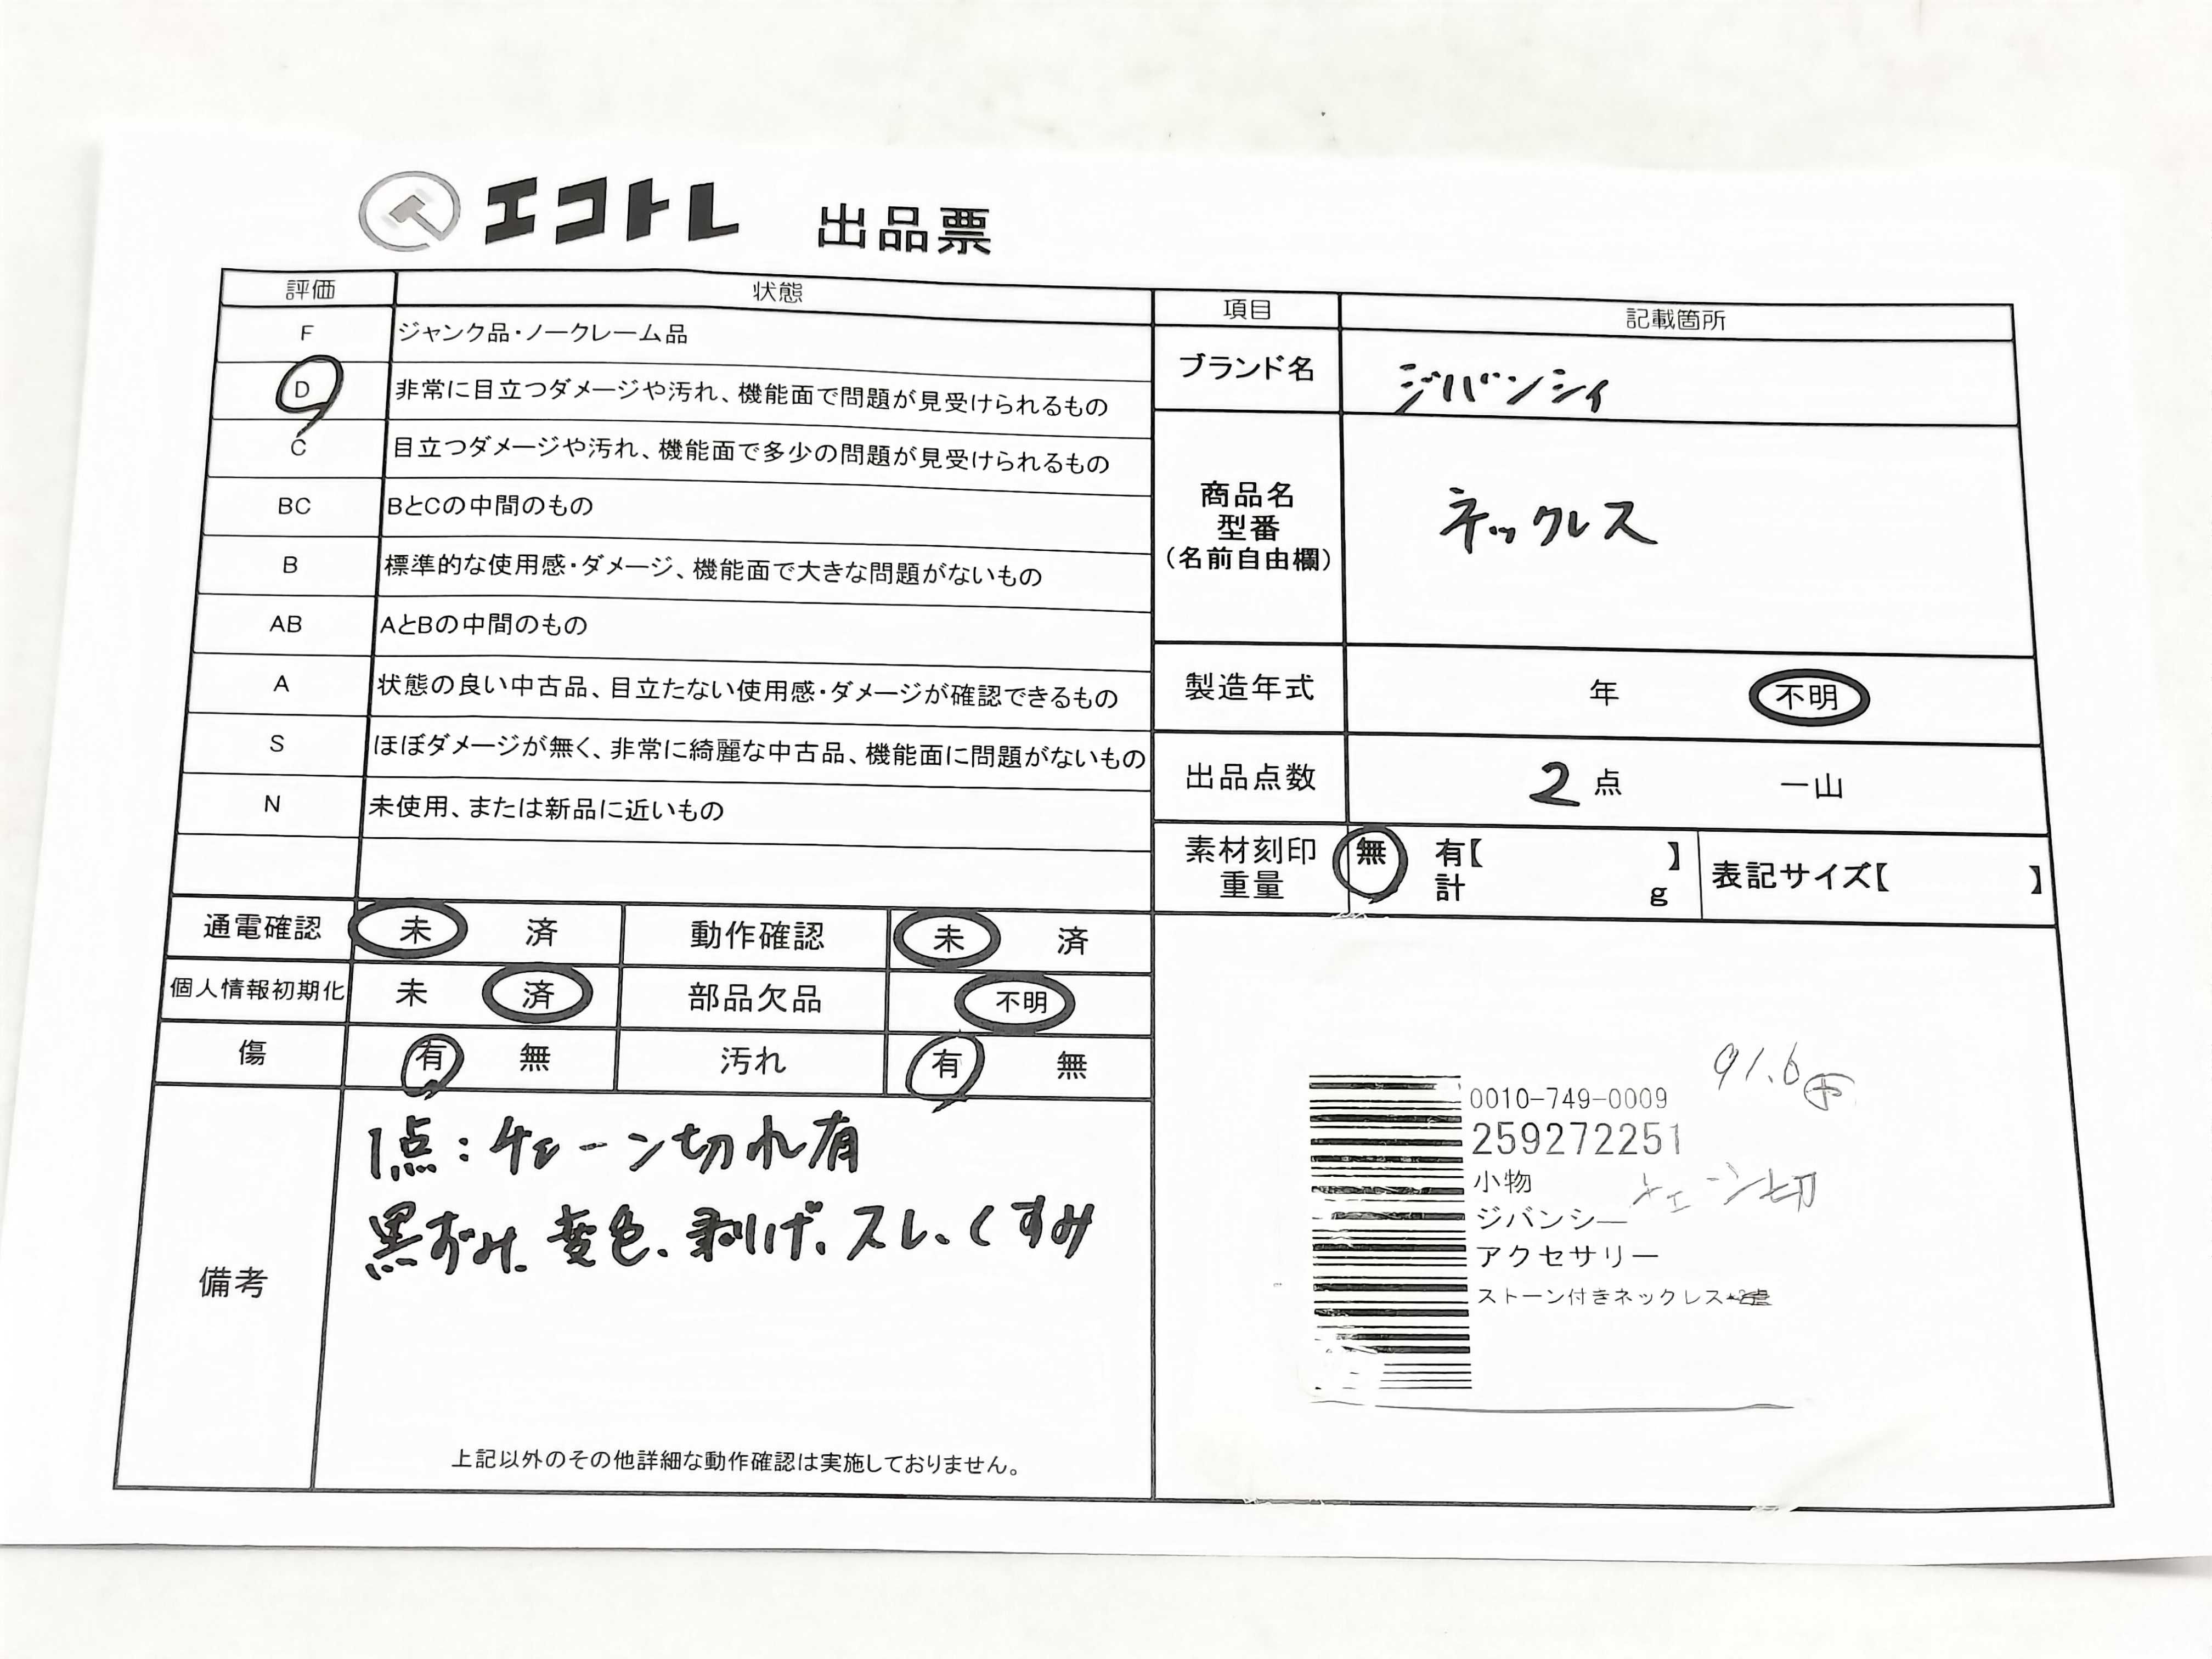 エコトレ 出品票
評価 状態
F ジャンク品・ノークレーム品
D 非常に目立つダメージや汚れ、機能面で問題が見受けられるもの
C 目立つダメージや汚れ、機能面で多少の問題が見受けられるもの
BC BとCの中間のもの
B 標準的な使用感・ダメージ、機能面で大きな問題がないもの
AB AとBの中間のもの
A 状態の良い中古品、目立たない使用感・ダメージが確認できるもの
S ほぼダメージが無く、非常に綺麗な中古品、機能面に問題がないもの
N 未使用、または新品に近いもの
通電確認 未 済 動作確認 未 済
個人情報初期化 未 済 部品欠品 不明
傷 有 無 汚れ 有 無
備考
1点:チェーン切れ有
黒ずみ、変色、剥げ、スレ、くすみ
上記以外のその他詳細な動作確認は実施しておりません。
項目 記載箇所
ブランド名 ジバンシィ
商品名
型番
(名前自由欄)
ネックレス
製造年式 年 不明
出品点数 2点 一山
素材刻印
重量
無 有【 】
計 g
表記サイズ【 】
91.6
0010-749-0009
259272251
小物 チェーン切
ジバンシー
アクセサリー
ストーン付きネックレス